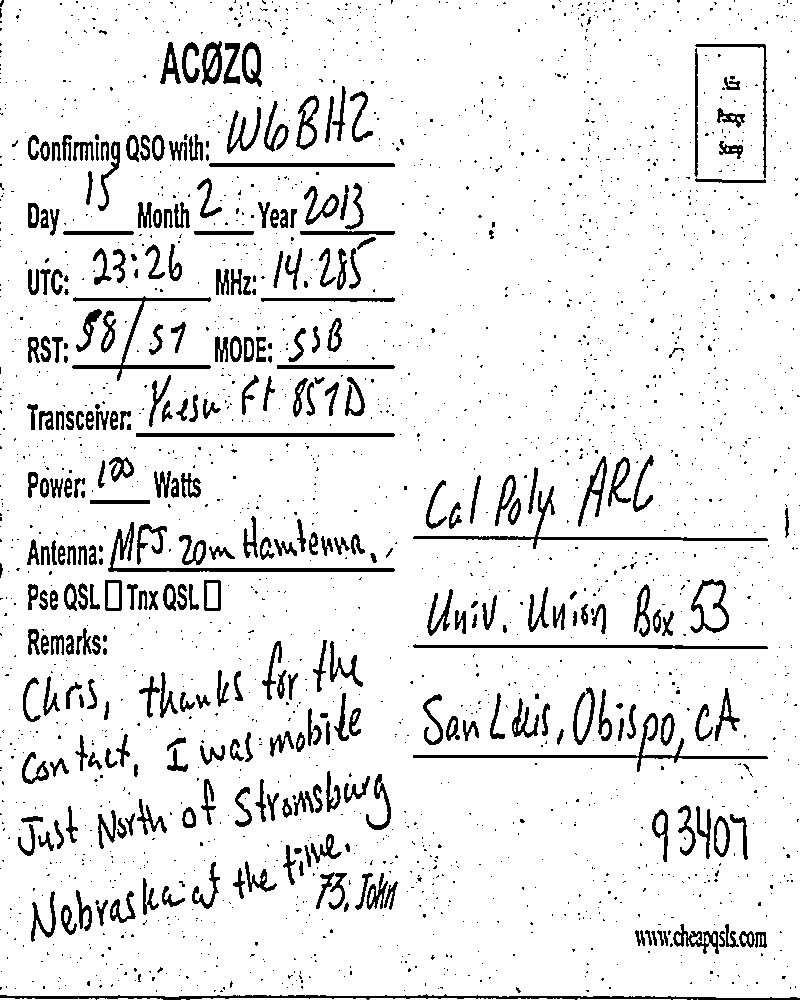 ACØZQ
Confirming QSO with: W6BHZ
Day 15 Month 2 Year 2013
UTC: 23:26 MHz: 14.285
RST: 58/57 MODE: SSB
Transceiver: Yaesu Ft 857D
Power: 100 Watts
Antenna: MFJ 20m Hamtenna,
Pse QSL Tnx QSL
Remarks:
Chris, thanks for the
contact, I was mobile
Just North of Stromsburg
Nebraska at the time.
73, John
Cal Poly ARC
Univ. Union Box 53
San Luis, Obispo, CA
93407
www.cheapqsls.com